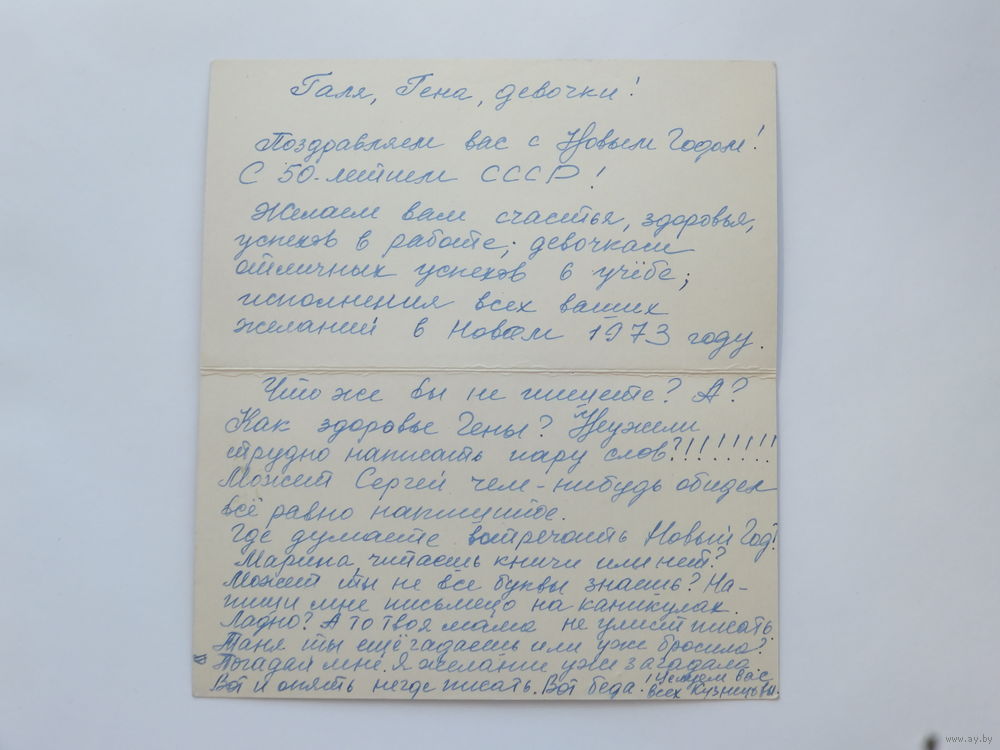 Галя, Гена, девочки!
Поздравляем вас с Новым Годом!
С 50-летием СССР!
Желаем вам счастья, здоровья,
успехов в работе; девочкам
отличных успехов в учёбе;
исполнения всех ваших
желаний в Новом 1973 году.
Что же вы не пишете? А?
Как здоровье Гены? Неужели
трудно написать пару слов?!!!!!!!!
Может Сергей чем-нибудь обидел
всё равно напишите.
Где думаете встречать Новый Год?
Марина, читаешь книги или нет?
Может ты не все буквы знаешь? На-
пиши мне письмецо на каникулах.
Ладно? А то твоя мама не умеет писать.
Таня ты ещё гадаешь или уже бросила?
Погадай мне. Я желание уже загадала.
Вот и опять негде писать. Вот беда! Целуем вас
всех Кузнецовы.
www.ay.by